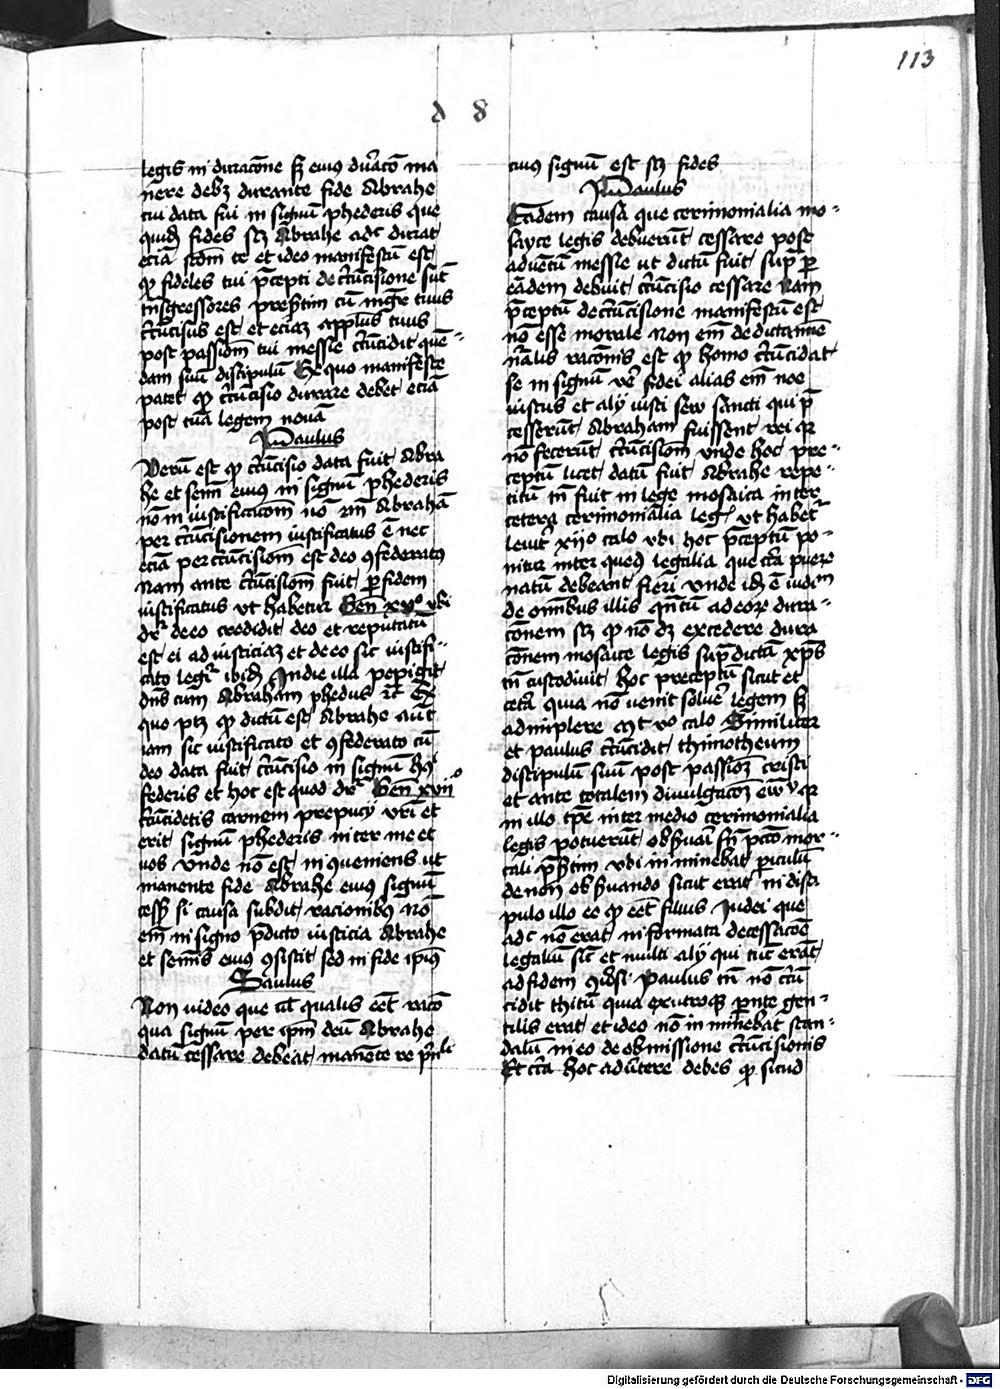 113
d 8
legis in duracōne sz eiuꝯ duracō ma
nere debz durante fide Abrahe
cui data fuit in signū phederis que
quidē fides scz Abrahe adc durat
eciā scdm te et ideo manifestū est
ꝙ fideles tui p̄cepti de cr̄cūcisione sūt
tn̄sgressores pres̄tim cū mgr̄ tuus
cr̄cūcisus est et eciaz appl̄us tuus
post passiōm tui messie cr̄cūcidit quē-
dam suū discipulū Ex quo manifeste
patet ꝙ cr̄cūcisio durare debet eciā
post tuā legem nouā
Paulus
Verū est ꝙ cr̄cūcisio data fuit Abra
he et semī eiuꝯ in signū phederis
nō in iustificacōm nō Abrahā
per cr̄cūcisionem iustificatus ē nec
eciā per cr̄cūcisiōm est deo ꝯfederatus
Nam ante cr̄cūcisiōm fuit per fidem
iustificatus vt habetur Gen̄ xvº vbi
dr̄ de eo credidit deo et reputatū
est ei ad iusticiaz et de eo sic iustifi-
cato legr̄ ibidē In die illa pepigit
dn̄s cum Abraham phedus rc̄ Ex
quo ptz ꝙ dictū est Abrahe
iam sic iustificato et ꝯfederato cū
deo data fuit cr̄cūcisio in signū hꝰ
federis et hoc est quod dr̄ Gen̄ xvijº
cr̄cūcidetis carnem prepucij vr̄i et
erit signū phederis inter me et
vos vnde nō est inꝯueniens ut
manente fide Abrahe eiuꝯ signū
cess si causa subdit racionibꝯ nō
em̄ in signo p̄dicto iusticia Abrahe
et semīs eiuꝯ ꝯsistit sed in fide ipiꝰ
Saulus
Non video que ul̄ qualis eēt racō
qua signū per ipm̄ deū Abrahe
datū cessare debeat manēte re
cuiꝯ signū est scz fides
Paulus
Eadem causa que cerimonialia mo-
sayce legis debuerūt cessare post
aduētū messie ut dictū fuit sup̄ per
eādem debuit cr̄cūcisio cessare nam
p̄ceptū de cr̄cūcisione manifestū est
nō esse morale non em̄ de dictamīe
nāl̄is racōnis est ꝙ homo cr̄cūcidat
se in signū v̄e fidei alias em̄ noe
iustus et alij iusti seu sancti qui p̄
cesserūt Abraham fuissent rei qr
nō fecerūt cr̄cūcisiōm vnde hoc pre-
ceptū licet datū fuit Abrahe repe-
titū tn̄ fuit in lege mosaica inter
cetera cerimonialia legꝭ vt habet
leuit̄ xijº calo vbi hoc p̄ceptū po-
nitur inter queꝯ legalia que cir̄ca puer
natū debeant fieri vnde idē ē iudiciū
de omībus illis qn̄tū ad eorz dura-
cōnem scz ꝙ nō dz excedere dura
cōnem mosaice legis sup̄dictā xpūs
tn̄ custodiuit hoc preceptū sicut et
cetā quia nō venit soluer̄ legem sz
adimplere mt̄ vº calo Similiter
et paulus cr̄cūcidit thimotheum
discipulū suū post passioz cristi
et ante totalem diuulgacōz ewᵛ qr
in illo tpē inter medio cerimonialia
legis potuerūt obs̄uari sn̄ pctō mor-
tali pres̄tim vbi inminebat periculū
de non obs̄uando sicut erat in disci
pulo illo eo ꝙ eēt filius Iudei que
adc nō erat informata de cessacōe
legaliū sic et multi alij qui tūc erāt
ad fidem ꝯūsi Paulus tn̄ nō cr̄cū
cidit thitū quia ex utroqz pn̄te gen-
tilis erat et ideo nō inminebat scan-
dalū in eo de obmissione cr̄cūcisionis
Et cir̄ca hoc aduertere debes ꝙ sicud
Digitalisierung gefördert durch die Deutsche Forschungsgemeinschaft - DFG